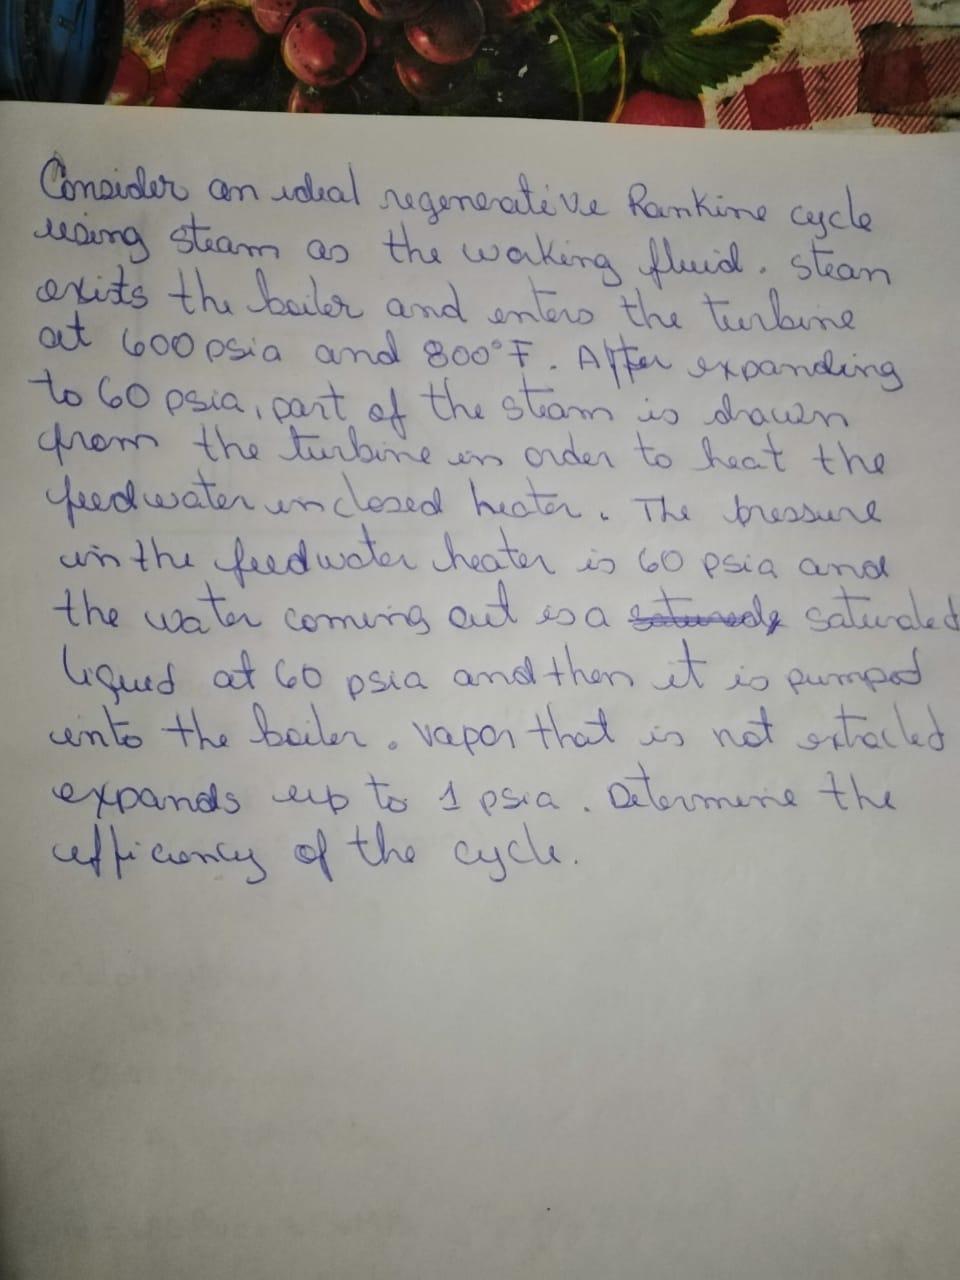 Consider an ideal regenerative Rankine cycle
using steam as the working fluid. Steam
exits the boiler and enters the turbine
at 600 psia and 800°F. After expanding
to 60 psia, part of the steam is drawn
from the turbine in order to heat the
feedwater in closed heater. The pressure
in the feedwater heater is 60 psia and
the water coming out is a saturated
liquid at 60 psia and then it is pumped
into the boiler. Vapor that is not extracted
expands up to 1 psia. Determine the
efficiency of the cycle.